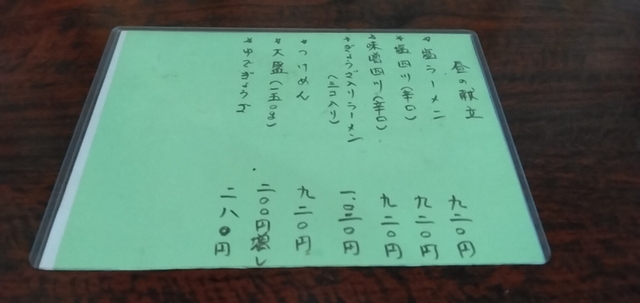 昼の献立
*塩ラーメン 九二〇円
*塩四川(辛口) 九二〇円
*味噌四川(辛口) 九二〇円
*ぎょうざ入りラーメン 一、〇三〇円
(三コ入り)
*つけめん 九二〇円
*大盛(一五〇g) 二〇〇円増し
*ゆでぎょうざ 二八〇円